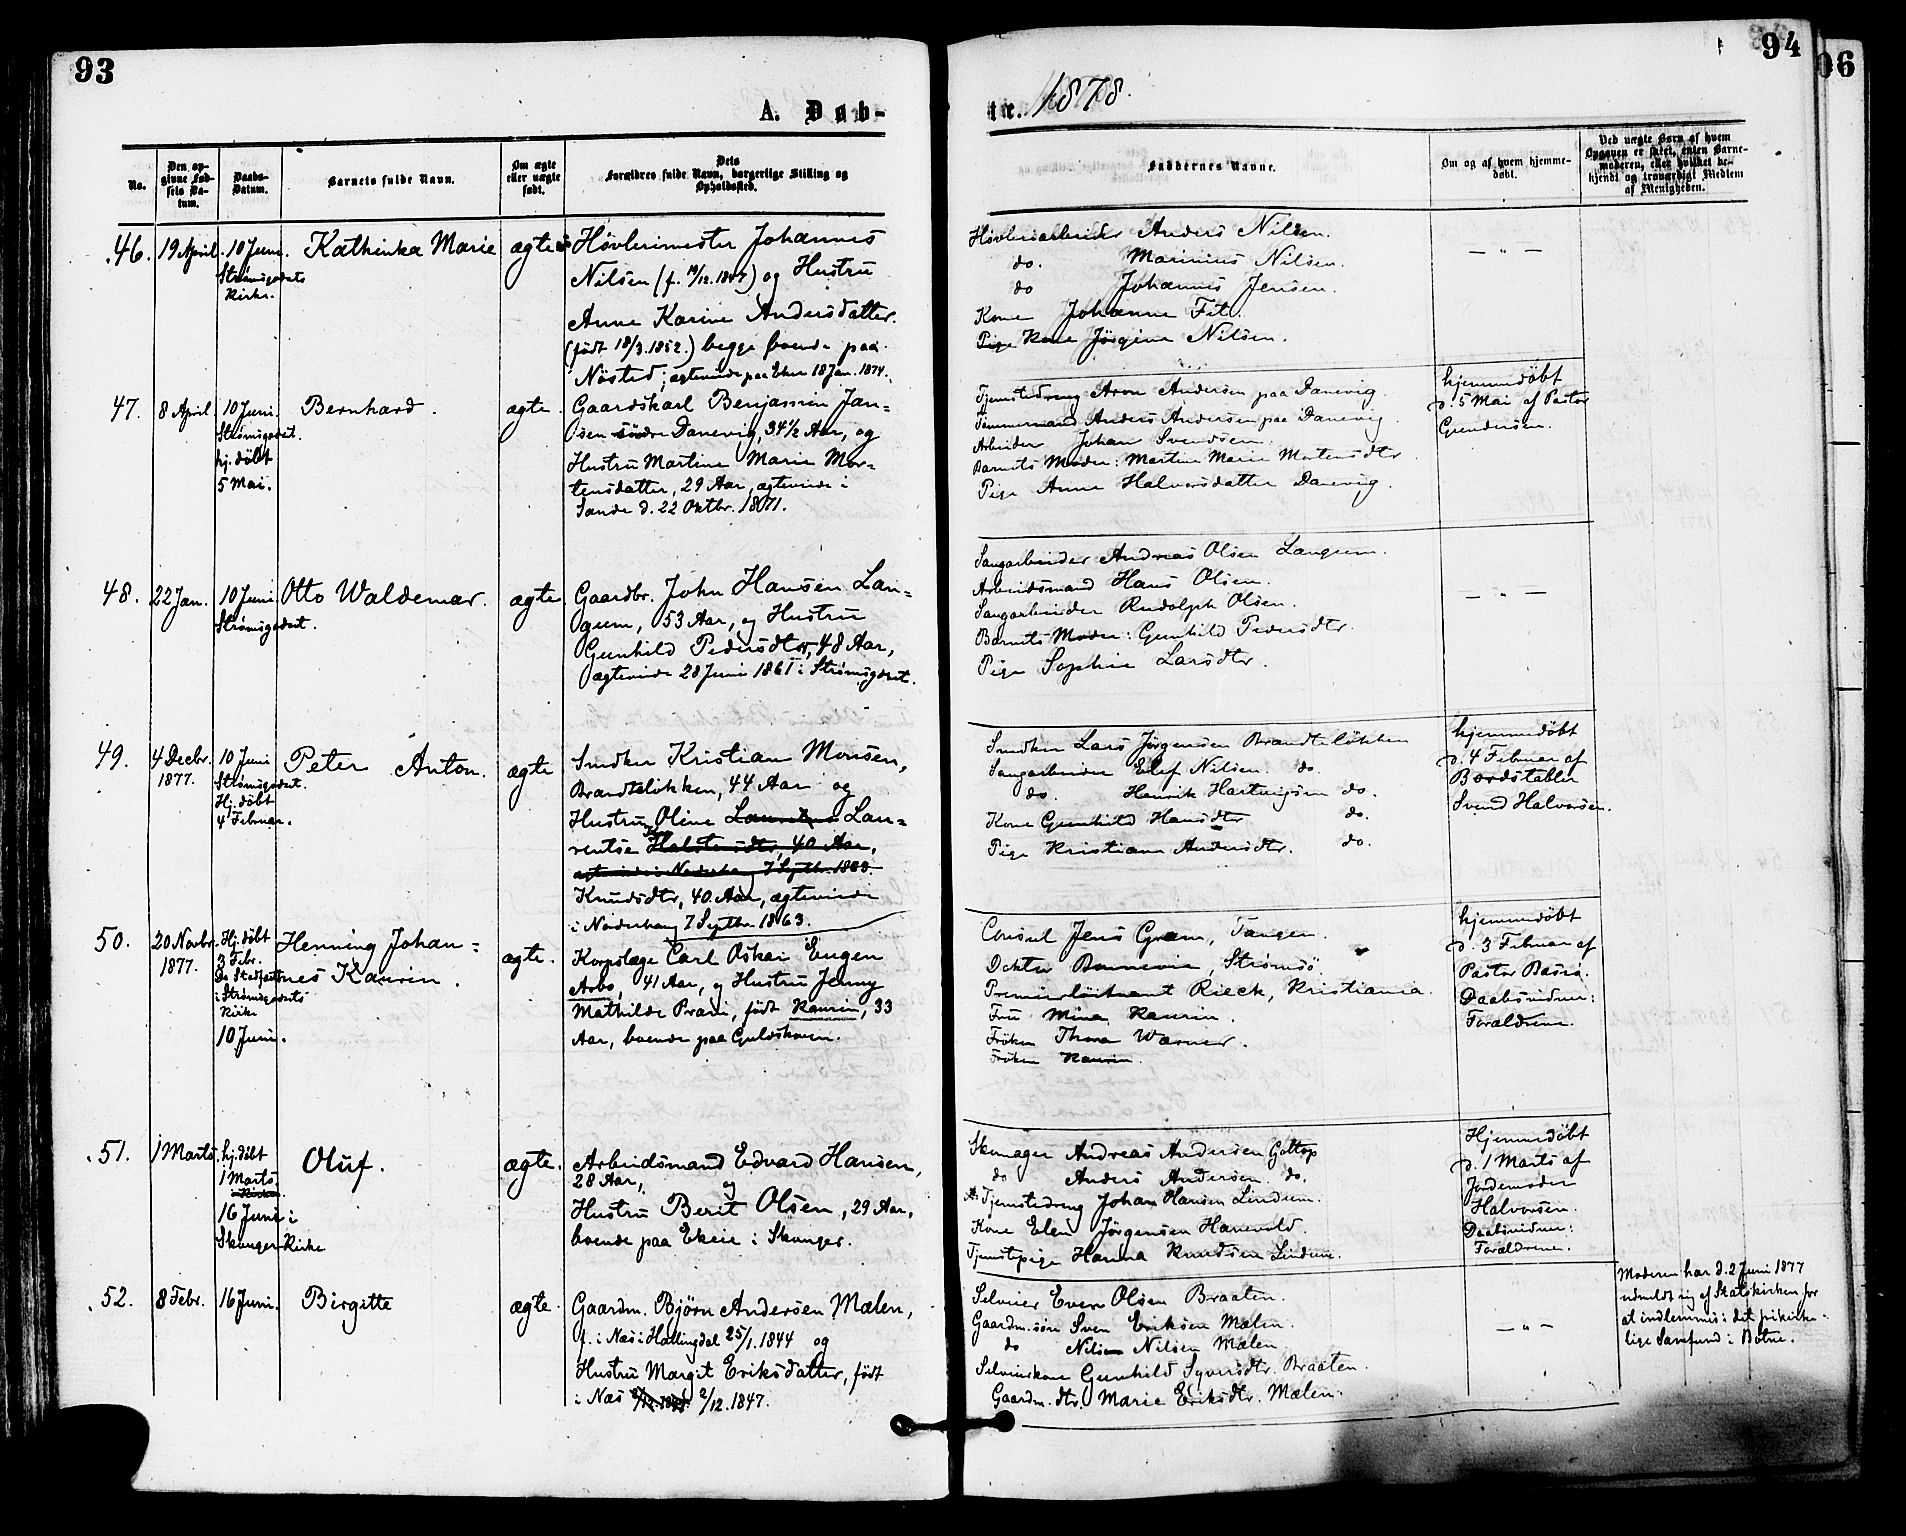 93
94
96
A. Døb-
te. 1878.
No.
Den op-
givne Fød-
sels Da-
tum.
Daabs-
Datum.
Barnets fulde Navn.
Om ægte
eller uægte
født.
Dets
Forældres fulde Navn, borgerlige Stilling og
Opholdssted.
Faddernes Navne.
Om og af hvem hjemme-
døbt.
Ved uægte Barn af hvem
Opgaven er sket, enten Barne-
moderen, eller hvilket be-
kjendt og troværdigt Medlem
af Menigheden.
46.
19 April
10 Juni
Strømsgodsets
Kirke.
Kathinka Marie
ægte
Høvlerimester Johannes
Nilsen (f. 19/12.1847) og Hustru
Anne Karine Andersdatter.
(født 18/3.1852.) begge boende paa
Nøsted; ægteviede paa Eker 18 Jan. 1874.
Høvleriarbeider Anders Nilsen.
do. Marinius Nilsen.
do Johannes Jensen.
Kone Johanne Fit.
Pige Kone Jørgine Nilsen.
— " —
47.
8 April
10 Juni
Strømsgodset.
hj. døbt
5 Mai.
Bernhard.
ægte.
Gaardskarl Benjamin Jan-
sen søndre Danevig, 34½ Aar, og
Hustru Martine Marie Mor-
tensdatter, 29 Aar, ægteviede i
Sande d. 22 Oktbr. 1871.
Tjenestedreng Aron Andersen paa Danevig.
Tømmermand Anders Andersen paa Danevig.
Arbeider Johan Svendsen.
Barnets Moder: Martine Marie Mortensdtr.
Pige Anne Halvorsdatter Danevig.
hjemmedøbt
d. 5 Mai af Pastor
Gundersen.
48.
22 Jan.
10 Juni
Strømsgodset.
Otto Waldemar.
ægte.
Gaardbr. John Hansen Lan-
gum, 53 Aar, og Hustru
Gunhild Pedersdtr, 48 Aar,
ægteviede 28 Juni 1861 i Strømsgodset.
Saugarbeider Andreas Olsen Langum.
Arbeidsmand Hans Olsen.
Saugarbeider Rudolph Olsen.
Barnets Moder: Gunhild Pedersdtr.
Pige Sophie Larsdtr.
— " —
49.
4 Decbr.
1877.
10 Juni
Strømsgodset.
Hj. døbt
4 Februar.
Peter Anton.
ægte
Snedker Kristian Monsen,
Brandtsløkken, 44 Aar og
Hustru Oline Lau-
rentse Halstensdtr, 40 Aar,
ægteviede i Norderhoug 7 Septbr. 1863.
Knudsdtr, 40 Aar, ægteviede
i Norderhoug 7 Septbr. 1863.
Snedker Lars Jørgensen Brandtsløkken
Saugarbeider Elef Nilsen do.
do. Henrik Hartvigsen do.
Kone Gunhild Hansdtr do.
Pige Kristiane Andersdtr. do.
hjemmedøbt
d. 4 Februar af
Bordstabler
Svend Halvorsen.
50.
20 Novbr.
1877.
Hj. døbt
3 Febr.
i Strømsgodsets
Kirke
10 Juni.
Henning Johan-
nes Kaurin.
ægte.
Korpslæge Carl Oskar Eugen
Arbo, 41 Aar, og Hustru Jenny
Mathilde Pravi, født Kaurin, 33
Aar, boende paa Guldskoven.
Consul Jens Gram, Tangen.
Doktor Bonnevie, Strømsø.
Premierløitnant Rieck, Kristiania.
Fru Mina Kaurin.
Frøken Thora Warner.
Frøken Kaurin.
hjemmedøbt
d. 3 Februar af
Pastor Bassø.
Daabsvidner:
Forældrene.
51.
1 Marts.
hj. døbt
1 Marts.
16 Juni i
Skouger Kirke
Oluf.
ægte.
Arbeidsmand Edvard Hansen,
28 Aar, og
Hustru Berit Olsen, 29 Aar,
boende paa Ekeie i Skouger.
Skomager Andreas Andersen Goltop
do Anders Andersen do.
Tjenestedreng Johan Hansen Lindum.
Kone Elen Jørgensen Hanevold.
Tjenestpige Hanna Knudsen Lindum.
Hjemmedøbt
d. 1 Marts af
Jordemoder
Halvorsen.
Daabsvidner:
Forældrene.
52.
8 Febr.
16 Juni.
Birgitte
ægte.
Gaardm. Bjørn Andersen Mælen,
f. i Næs i Hallingdal 25/1. 1844 og
Hustru Margit Eriksdatter, født
i Næs 2/12. 1847.
Selveier Even Olsen Braaten.
Gaardm. søn Sven Eriksen Mælen.
do Nilsen Nilsen Mælen
Selveierkone Gunhild Syversdtr. Braaten.
Gaardm. dtr. Marie Eriksdtr. Mælen.
— " —
Moderen har d. 2 Juni 1877
udmeldt sig af Statskirken for
at indlemmes i det frikirke-
lige Samfund i Botne.